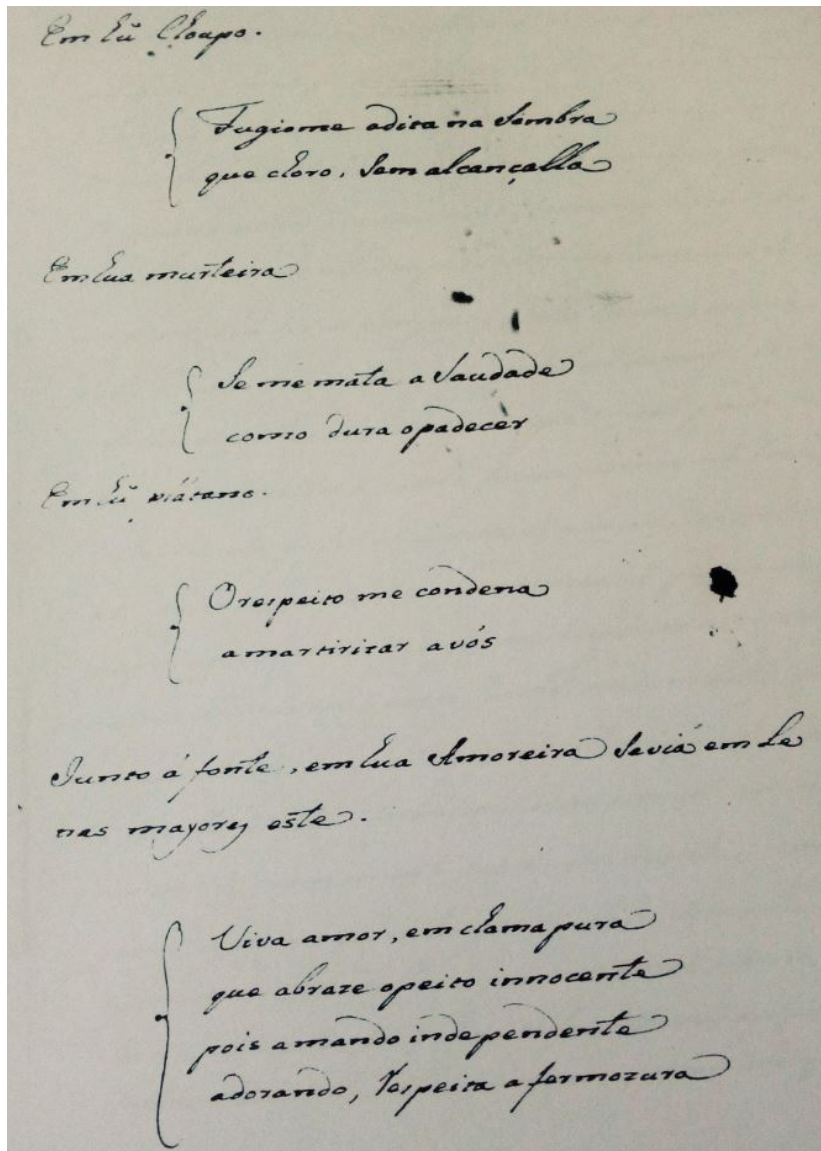 Em hũ Choupo.
Fugiome adita na Sombra
que choro, Sem alcançalla
Em hua murteira
Se me mata a Saudade
como dura opadecer
Em hũ plátano.
Orespeito me condena
amartirizar avós
Junto á fonte, em hua Amoreira Seviá em Le
tras mayores este.
Viva amor, em chama pura
que abraze opeito innocente
pois amando independente
adorando, Respeita a fermozura